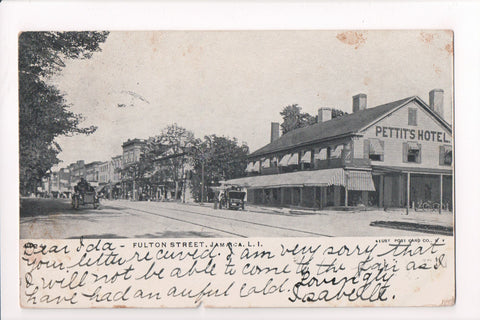 PETTIT'S HOTEL
FULTON STREET, JAMAICA, L. I.
POST CARD CO.
Dear Ida -
Your letter recived. I am very sorry that
I will not be able to come to the fair as I
have had an awful cold. Lovingly
Isabelle.